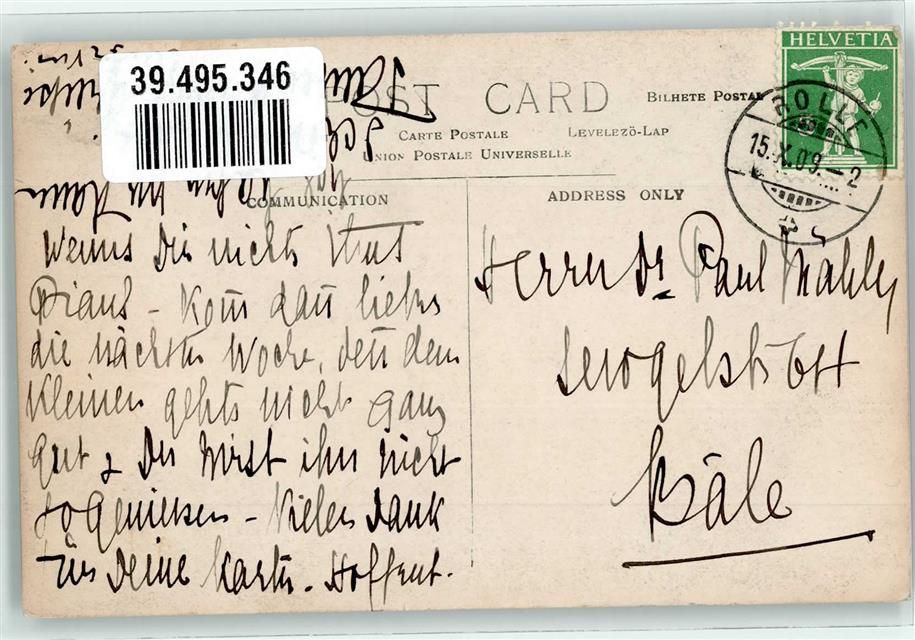 39.495.346
POST CARD
BILHETE POSTAL
CARTE POSTALE LEVELEZÖ-LAP
UNION POSTALE UNIVERSELLE
COMMUNICATION
ADDRESS ONLY
HELVETIA
ROLLE
15.X.09.–2
Wenns Dir nichts thut
– Kom̄ dan̄ liebs
die nächste Woche, den̄ dem
Kleinen gehts nicht ganz
gut & Du wirst ihn nicht
so geniessen – Vielen Dank
für Deine Karte. Hoffent.
Herrn Dr. Paul
Sevogelstr. 64
Bâle